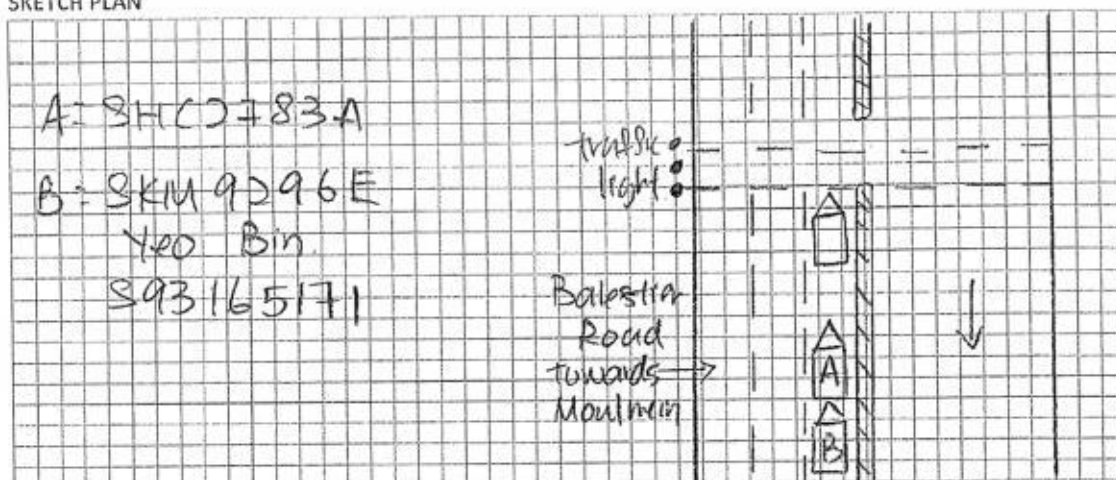 SKETCH PLAN
A: SHC2783A
B: SKM9296E
Yeo Bin
traffic
light
Balestier
Road
towards
Moulmein
A
B